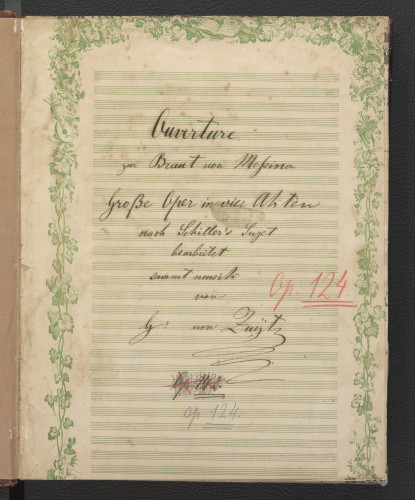 Ouverture
zur Braut von Meßina
Große Oper in vier Akten
nach Schiller's Sujet
bearbeitet
sammt musik
von
Op 124.
G: von Zaÿtz
Op 124.